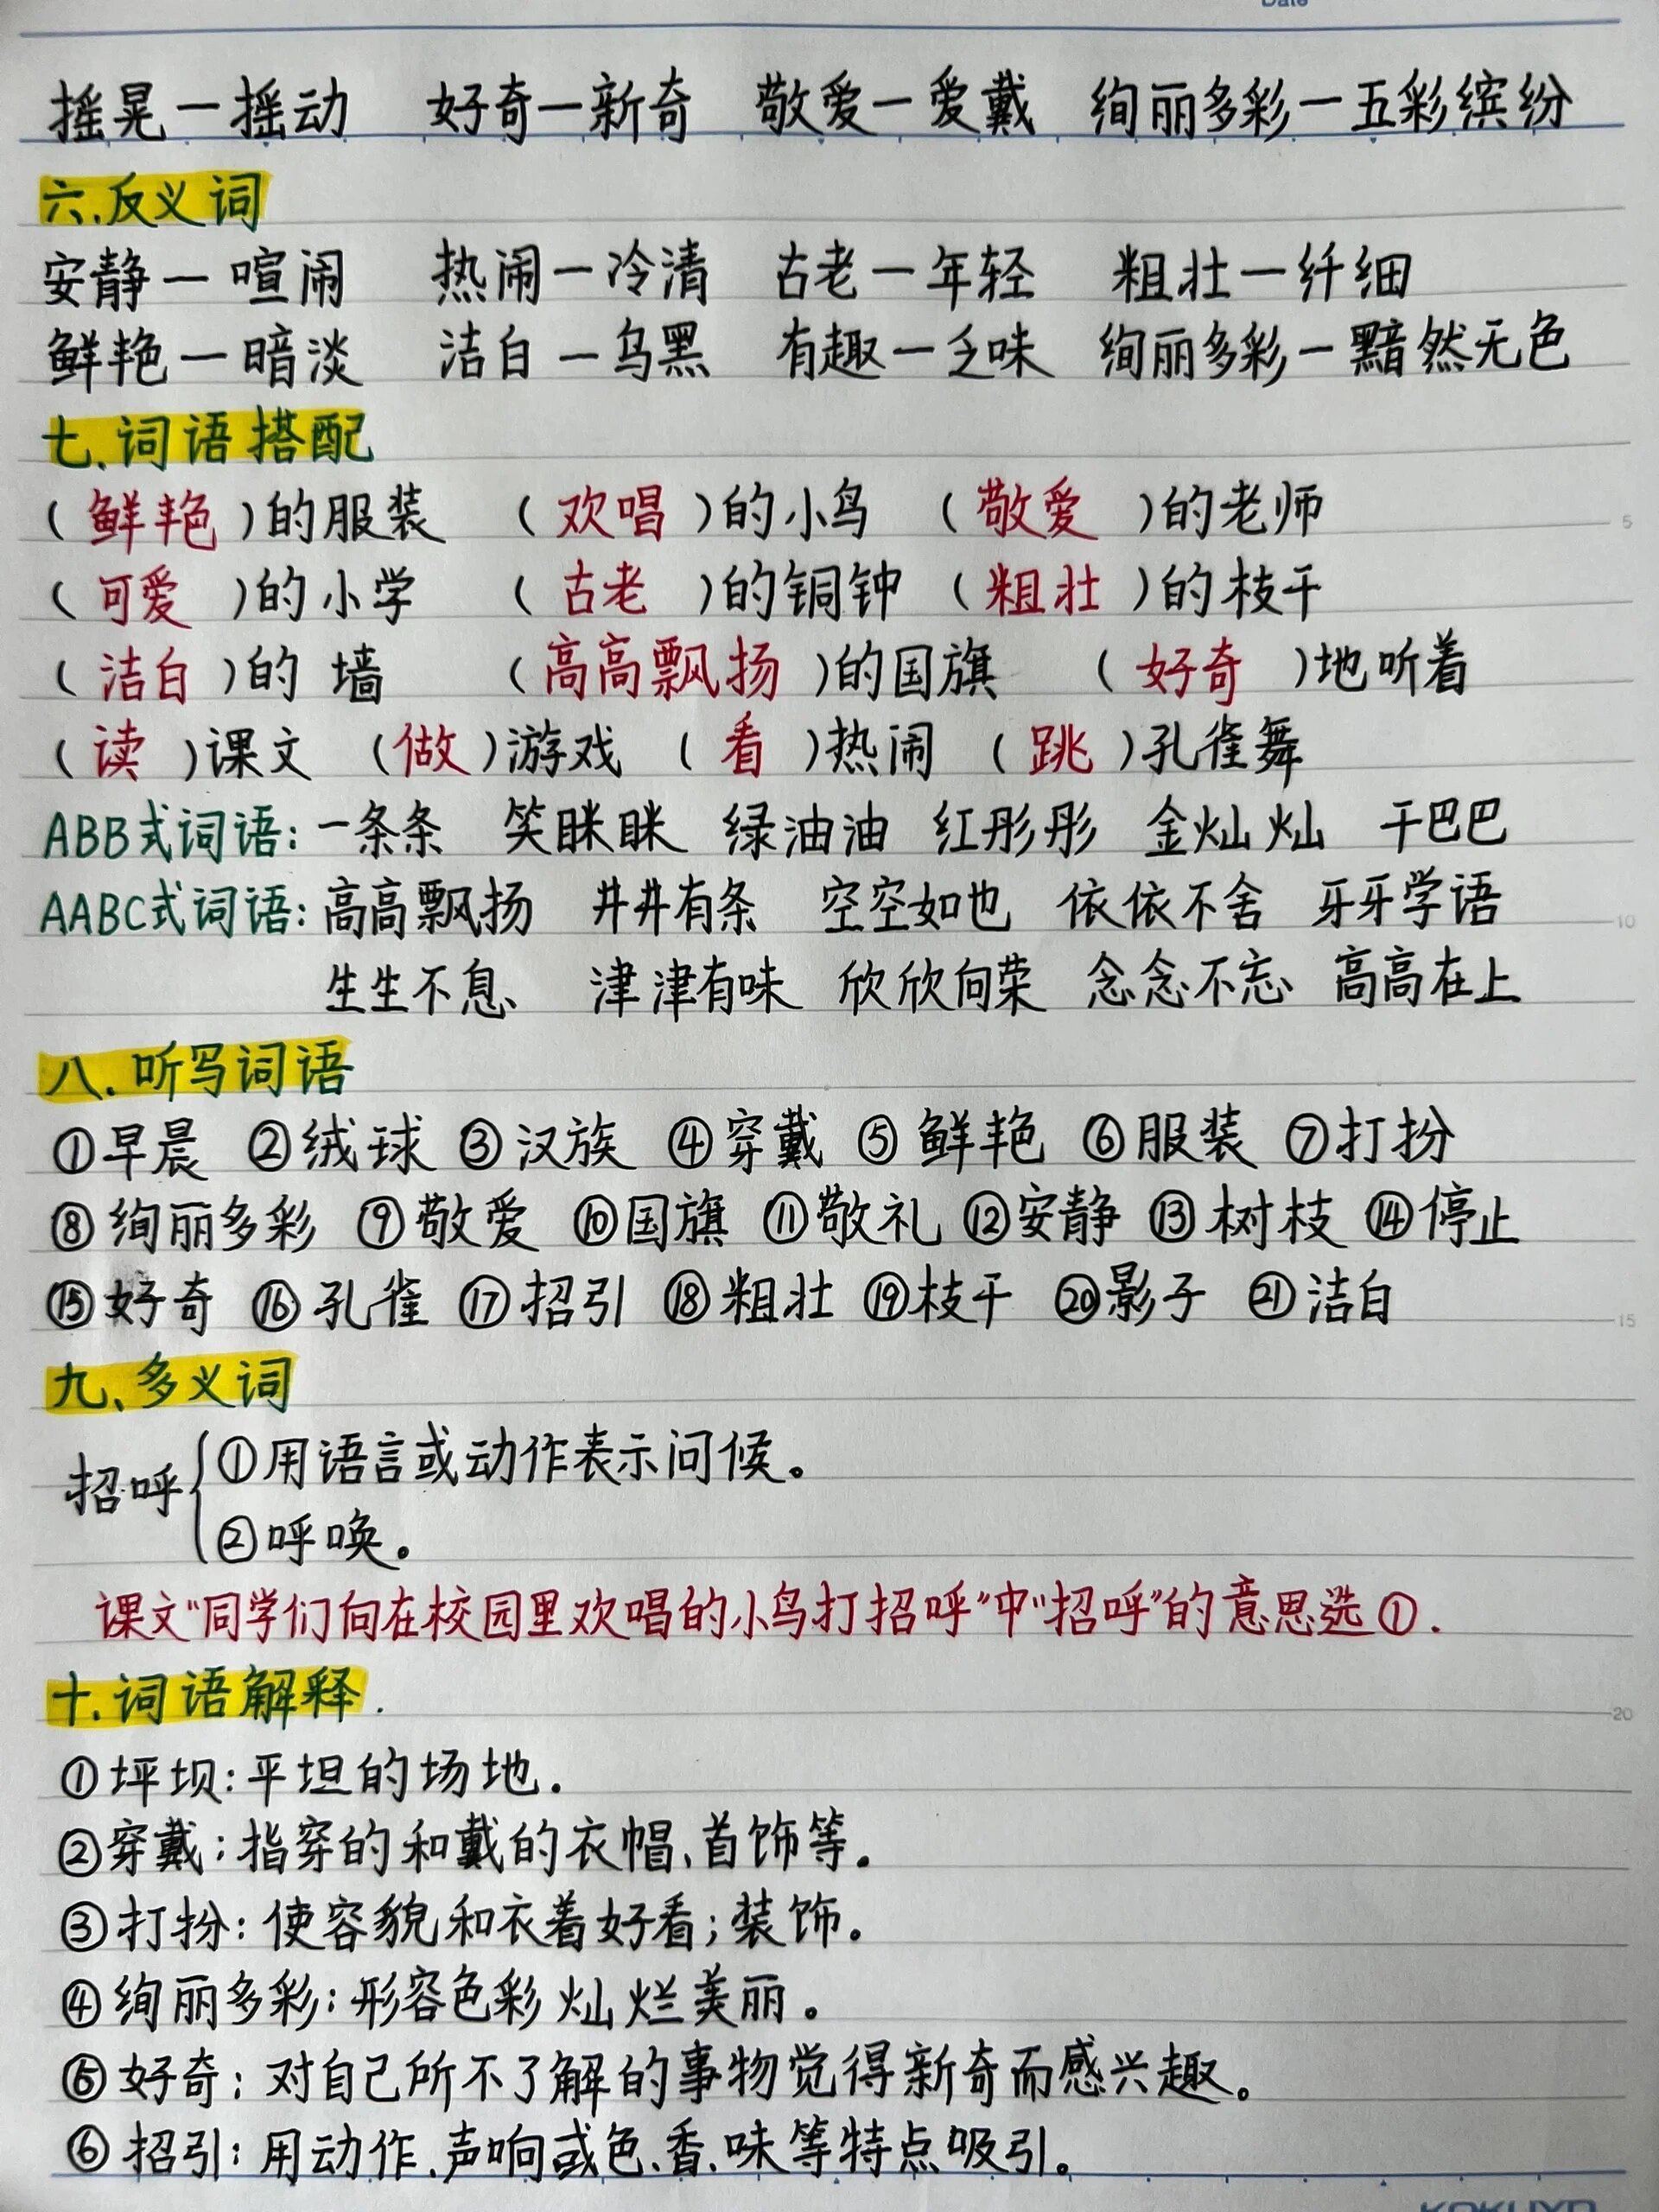 Date
摇晃—摇动 好奇—新奇 敬爱—爱戴 绚丽多彩—五彩缤纷
六.反义词
安静—喧闹 热闹—冷清 古老—年轻 粗壮—纤细
鲜艳—暗淡 洁白—乌黑 有趣—乏味 绚丽多彩—黯然无色
七.词语搭配
(鲜艳)的服装 (欢唱)的小鸟 (敬爱)的老师
(可爱)的小学 (古老)的铜钟 (粗壮)的枝干
(洁白)的墙 (高高飘扬)的国旗 (好奇)地听着
(读)课文 (做)游戏 (看)热闹 (跳)孔雀舞
ABB式词语:一条条 笑眯眯 绿油油 红彤彤 金灿灿 干巴巴
AABC式词语:高高飘扬 井井有条 空空如也 依依不舍 牙牙学语
生生不息、 津津有味 欣欣向荣 念念不忘 高高在上
八.听写词语
①早晨 ②绒球 ③汉族 ④穿戴 ⑤鲜艳 ⑥服装 ⑦打扮
⑧绚丽多彩 ⑨敬爱 ⑩国旗 ⑪敬礼 ⑫安静 ⑬树枝 ⑭停止
⑮好奇 ⑯孔雀 ⑰招引 ⑱粗壮 ⑲枝干 ⑳影子 ㉑洁白
九、多义词
招呼{①用语言或动作表示问候。
②呼唤。
课文“同学们向在校园里欢唱的小鸟打招呼”中“招呼”的意思选①.
十.词语解释.
①坪坝:平坦的场地.
②穿戴:指穿的和戴的衣帽、首饰等。
③打扮:使容貌和衣着好看;装饰。
④绚丽多彩:形容色彩灿烂美丽。
⑤好奇:对自己所不了解的事物觉得新奇而感兴趣。
⑥招引:用动作、声响或色、香、味等特点吸引。
5
10
15
20
KOKUYO